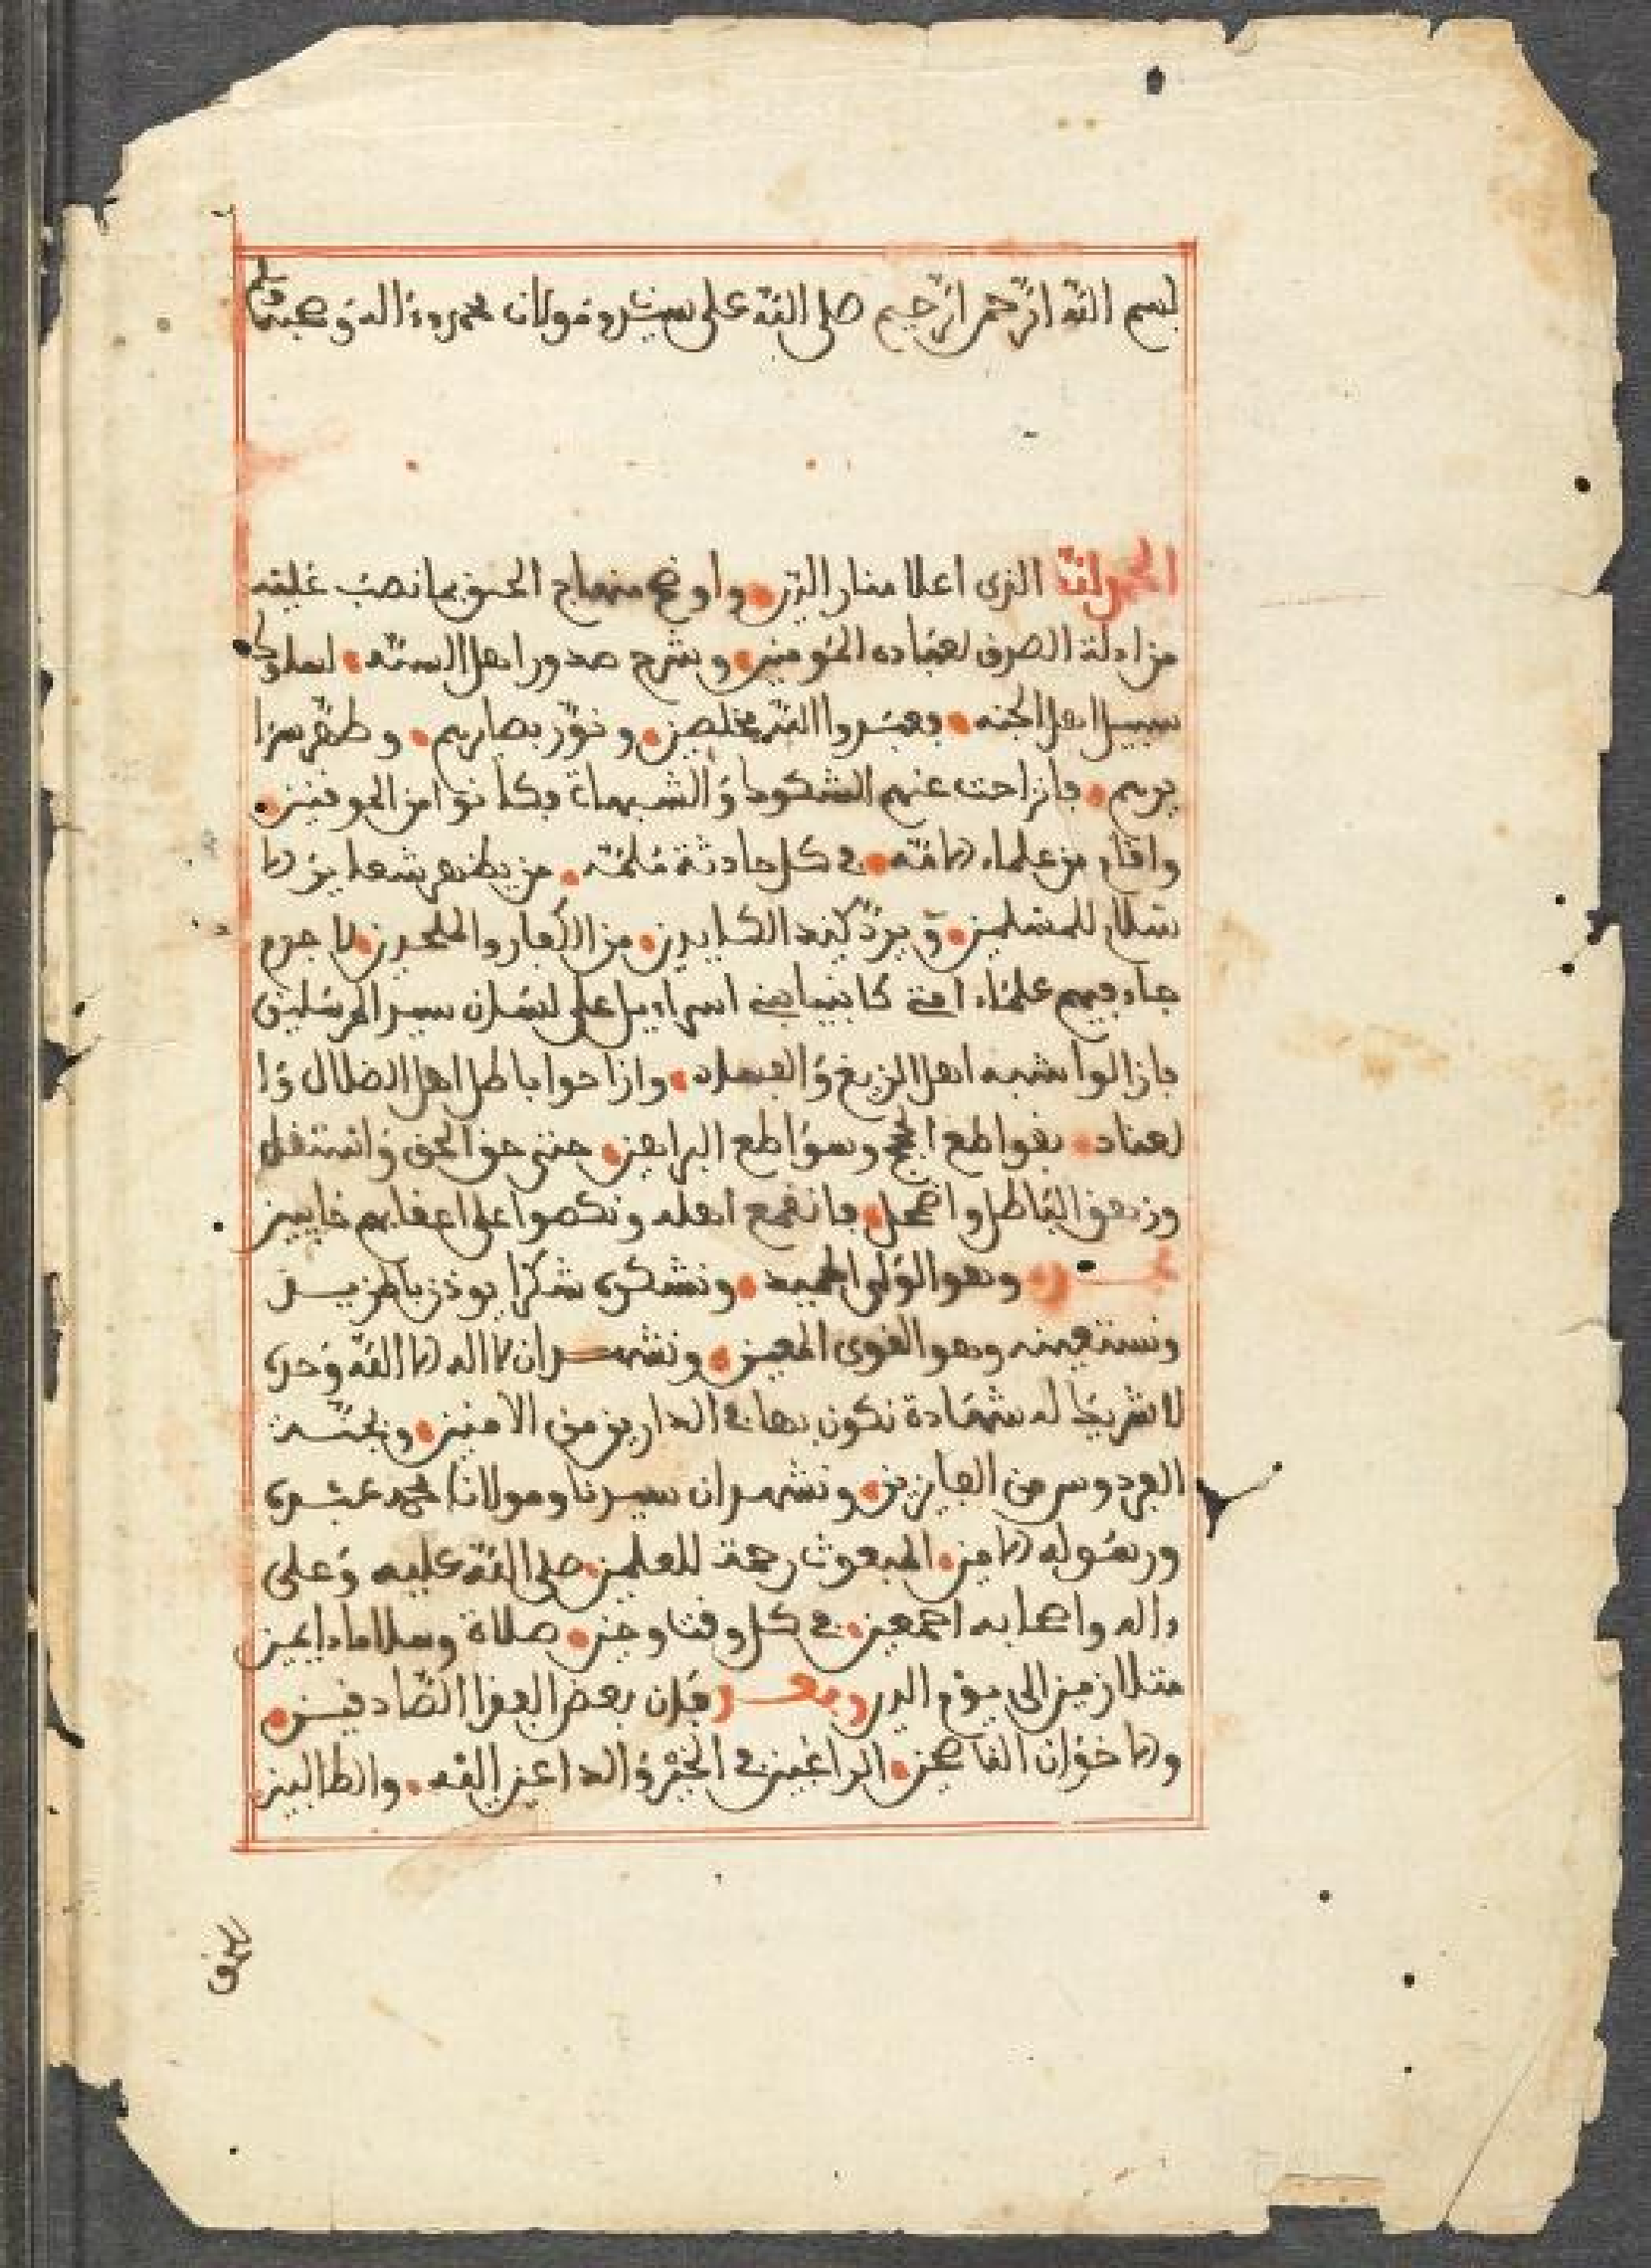 بسم الله الرحمن الرحيم صلى الله على سيدنا ومولانا محمد وءاله وصحبه
الحمد لله الذى اعلا منار الدين واوضح منهاج الحق بما نصب عليه
من ادلة الصدق لعباده المومنين وشرح صدور اهل السنه لسلوك
سبيل اهل الجنه فعبدوا الله مخلصين ونور بصايرهم وطهر سرا
يرهم فانزاحت عنهم الشكوك والشبهات فكانوا من الموقنين
واقام من علماء الامة في كل حادثة ملمة من يظهر شعاير الا
سلام للمسلمين ويرد كيد الكايدين من الكفار والملحدين لا جرم
جاء فيهم علماء امتي كانبياء بني اسراءيل على لسان سيد المرسلين
فازالوا شبه اهل الزيغ والفساد وازاحوا باطل اهل الضلال وا
لعناد بقواطع الحجج وسواطع البراهين حتى حق الحق واستقل
وزهق الباطل واضمحل فانقمع اهله ونكصوا على اعقابهم خايبين
وهو الولى الحميد ونشكره شكرا يوذن بالمزيد
ونستعينه وهو القوى المعين ونشهد ان لا اله الا الله وحده
لا شريك له شهادة نكون بها في الدارين من الامنين وبجنة
الفردوس من الفايزين ونشهد ان سيدنا ومولانا محمد عبده
ورسوله الامين المبعوث رحمة للعلمين صلى الله عليه وعلى
ءاله واصحابه اجمعين في كل وقت وحين صلاة وسلاما دايمين
متلازمين الى يوم الدين وبعد فان بعض الفقرا الصادقين
والاخوان الناصحين الراغبين في الخير والداعين اليه والطالبين